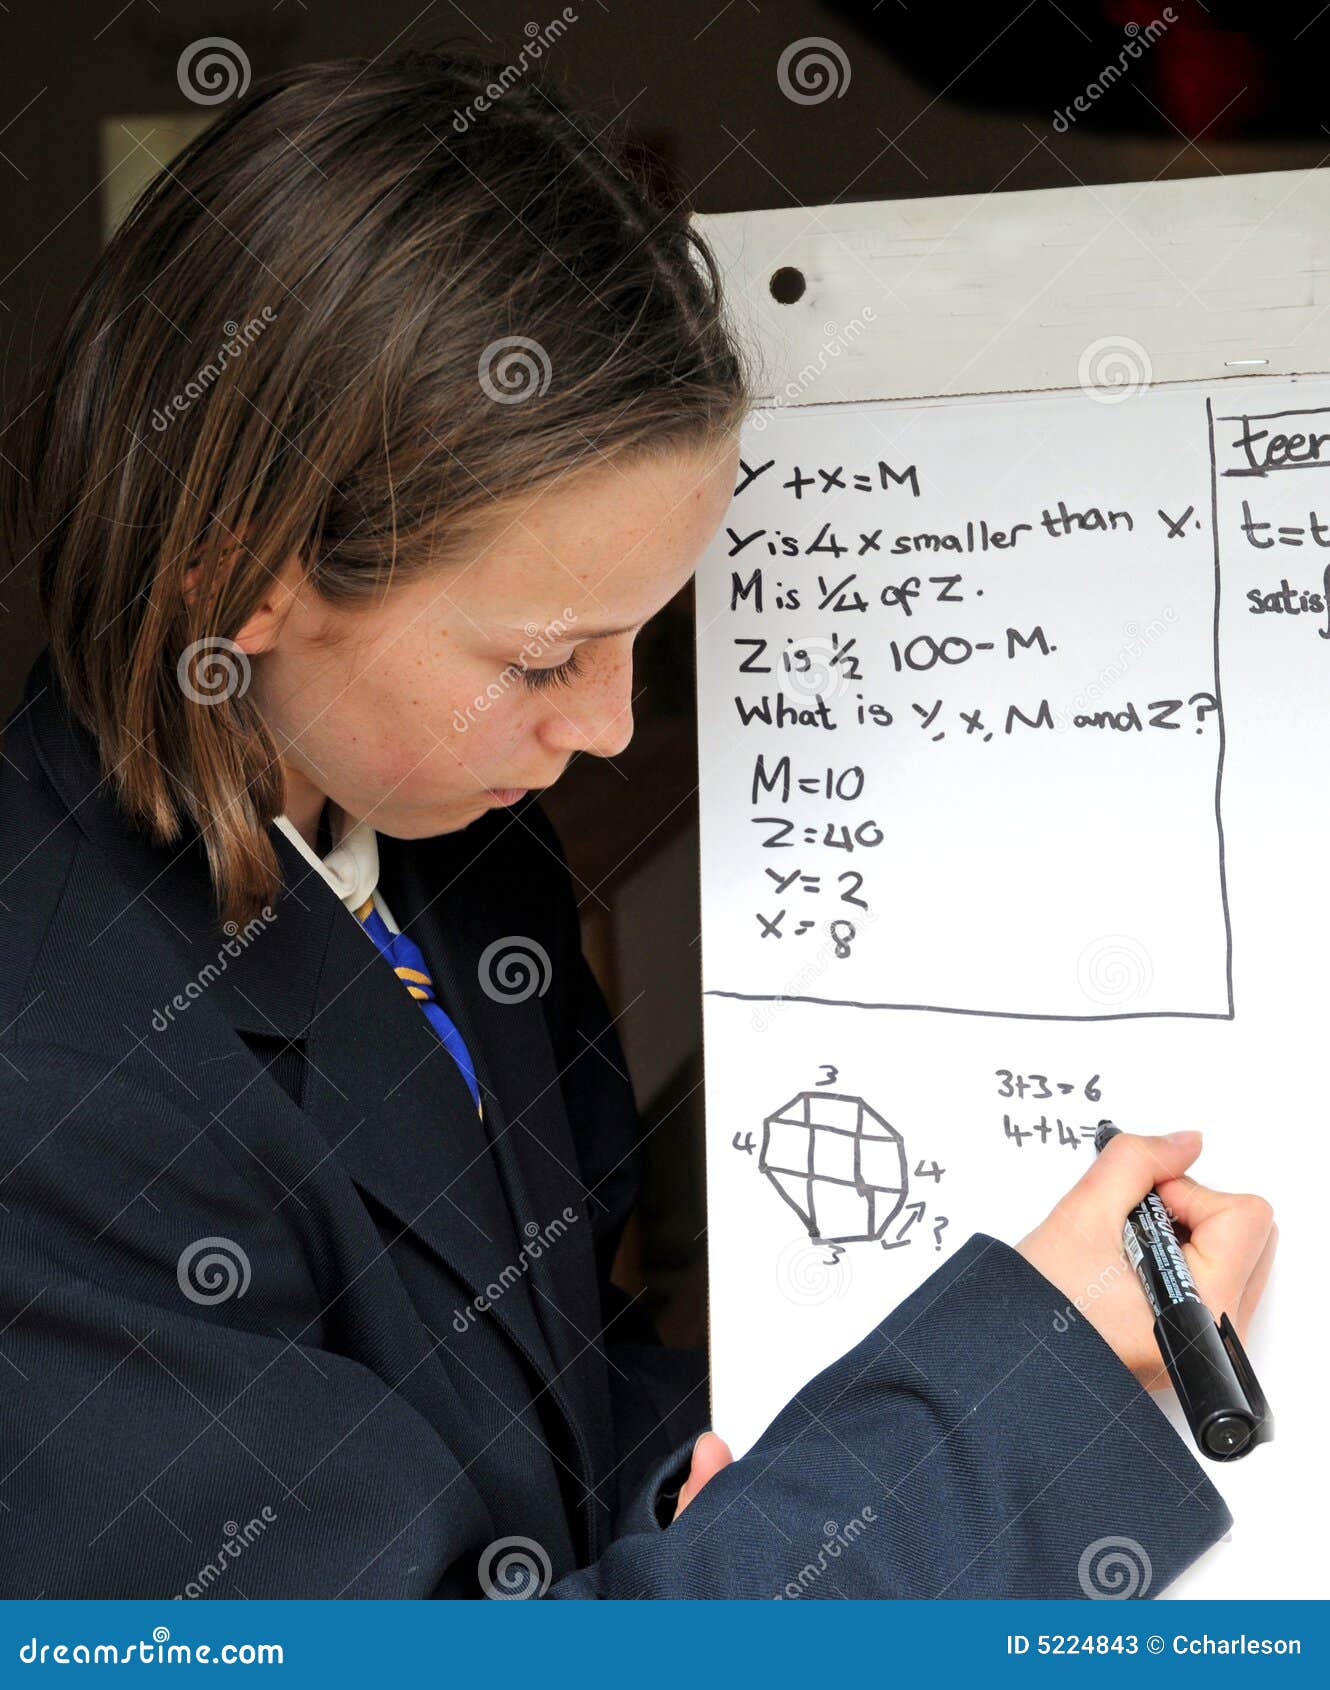 Y+x=M
Y is 4 x smaller than x.
M is 1/4 of Z.
Z is 1/2 100-M.
What is Y, x, M and Z?
M=10
Z=40
Y=2
X=8
teen
t=t
satisf
3
4
4
?
3
3+3=6
4+4=
dreamstime.com
ID 5224843 © Ccharleson